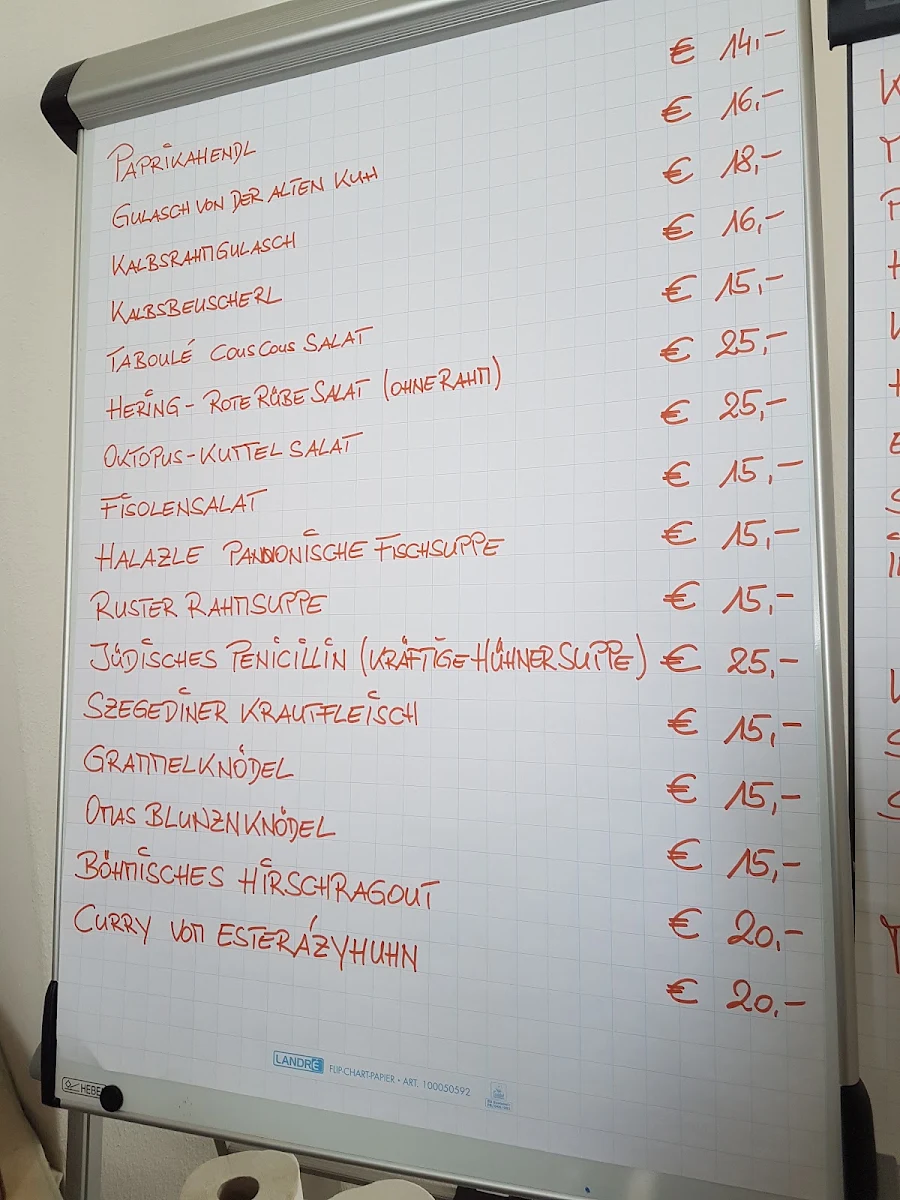 PAPRIKAHENDL € 14,–
GULASCH VON DER ALTEN KUH € 16,–
KALBSRAHMGULASCH € 18,–
KALBSBEUSCHERL € 16,–
TABOULÉ COUSCOUS SALAT € 15,–
HERING – ROTE RÜBE SALAT (OHNE RAHM) € 25,–
OKTOPUS-KUTTEL SALAT € 25,–
FISOLENSALAT € 15,–
HALAZLE PANNONISCHE FISCHSUPPE € 15,–
RUSTER RAHMSUPPE € 15,–
JÜDISCHES PENICILLIN (KRÄFTIGE HÜHNERSUPPE) € 25,–
SZEGEDINER KRAUTFLEISCH € 15,–
GRAMMELKNÖDEL € 15,–
OMAS BLUNZNKNÖDEL € 15,–
BÖHMISCHES HIRSCHRAGOUT € 20,–
CURRY VOM ESTERÁZYHUHN € 20,–
LANDRÉ FLIP-CHART-PAPIER • ART. 100050592
HEBE